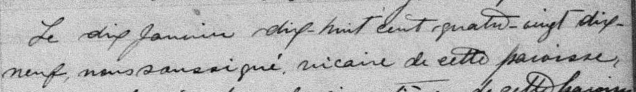 Le dix janvier dix-huit cent quatre-vingt dix-
neuf, nous soussigné, vicaire de cette paroisse,
de cette paroisse